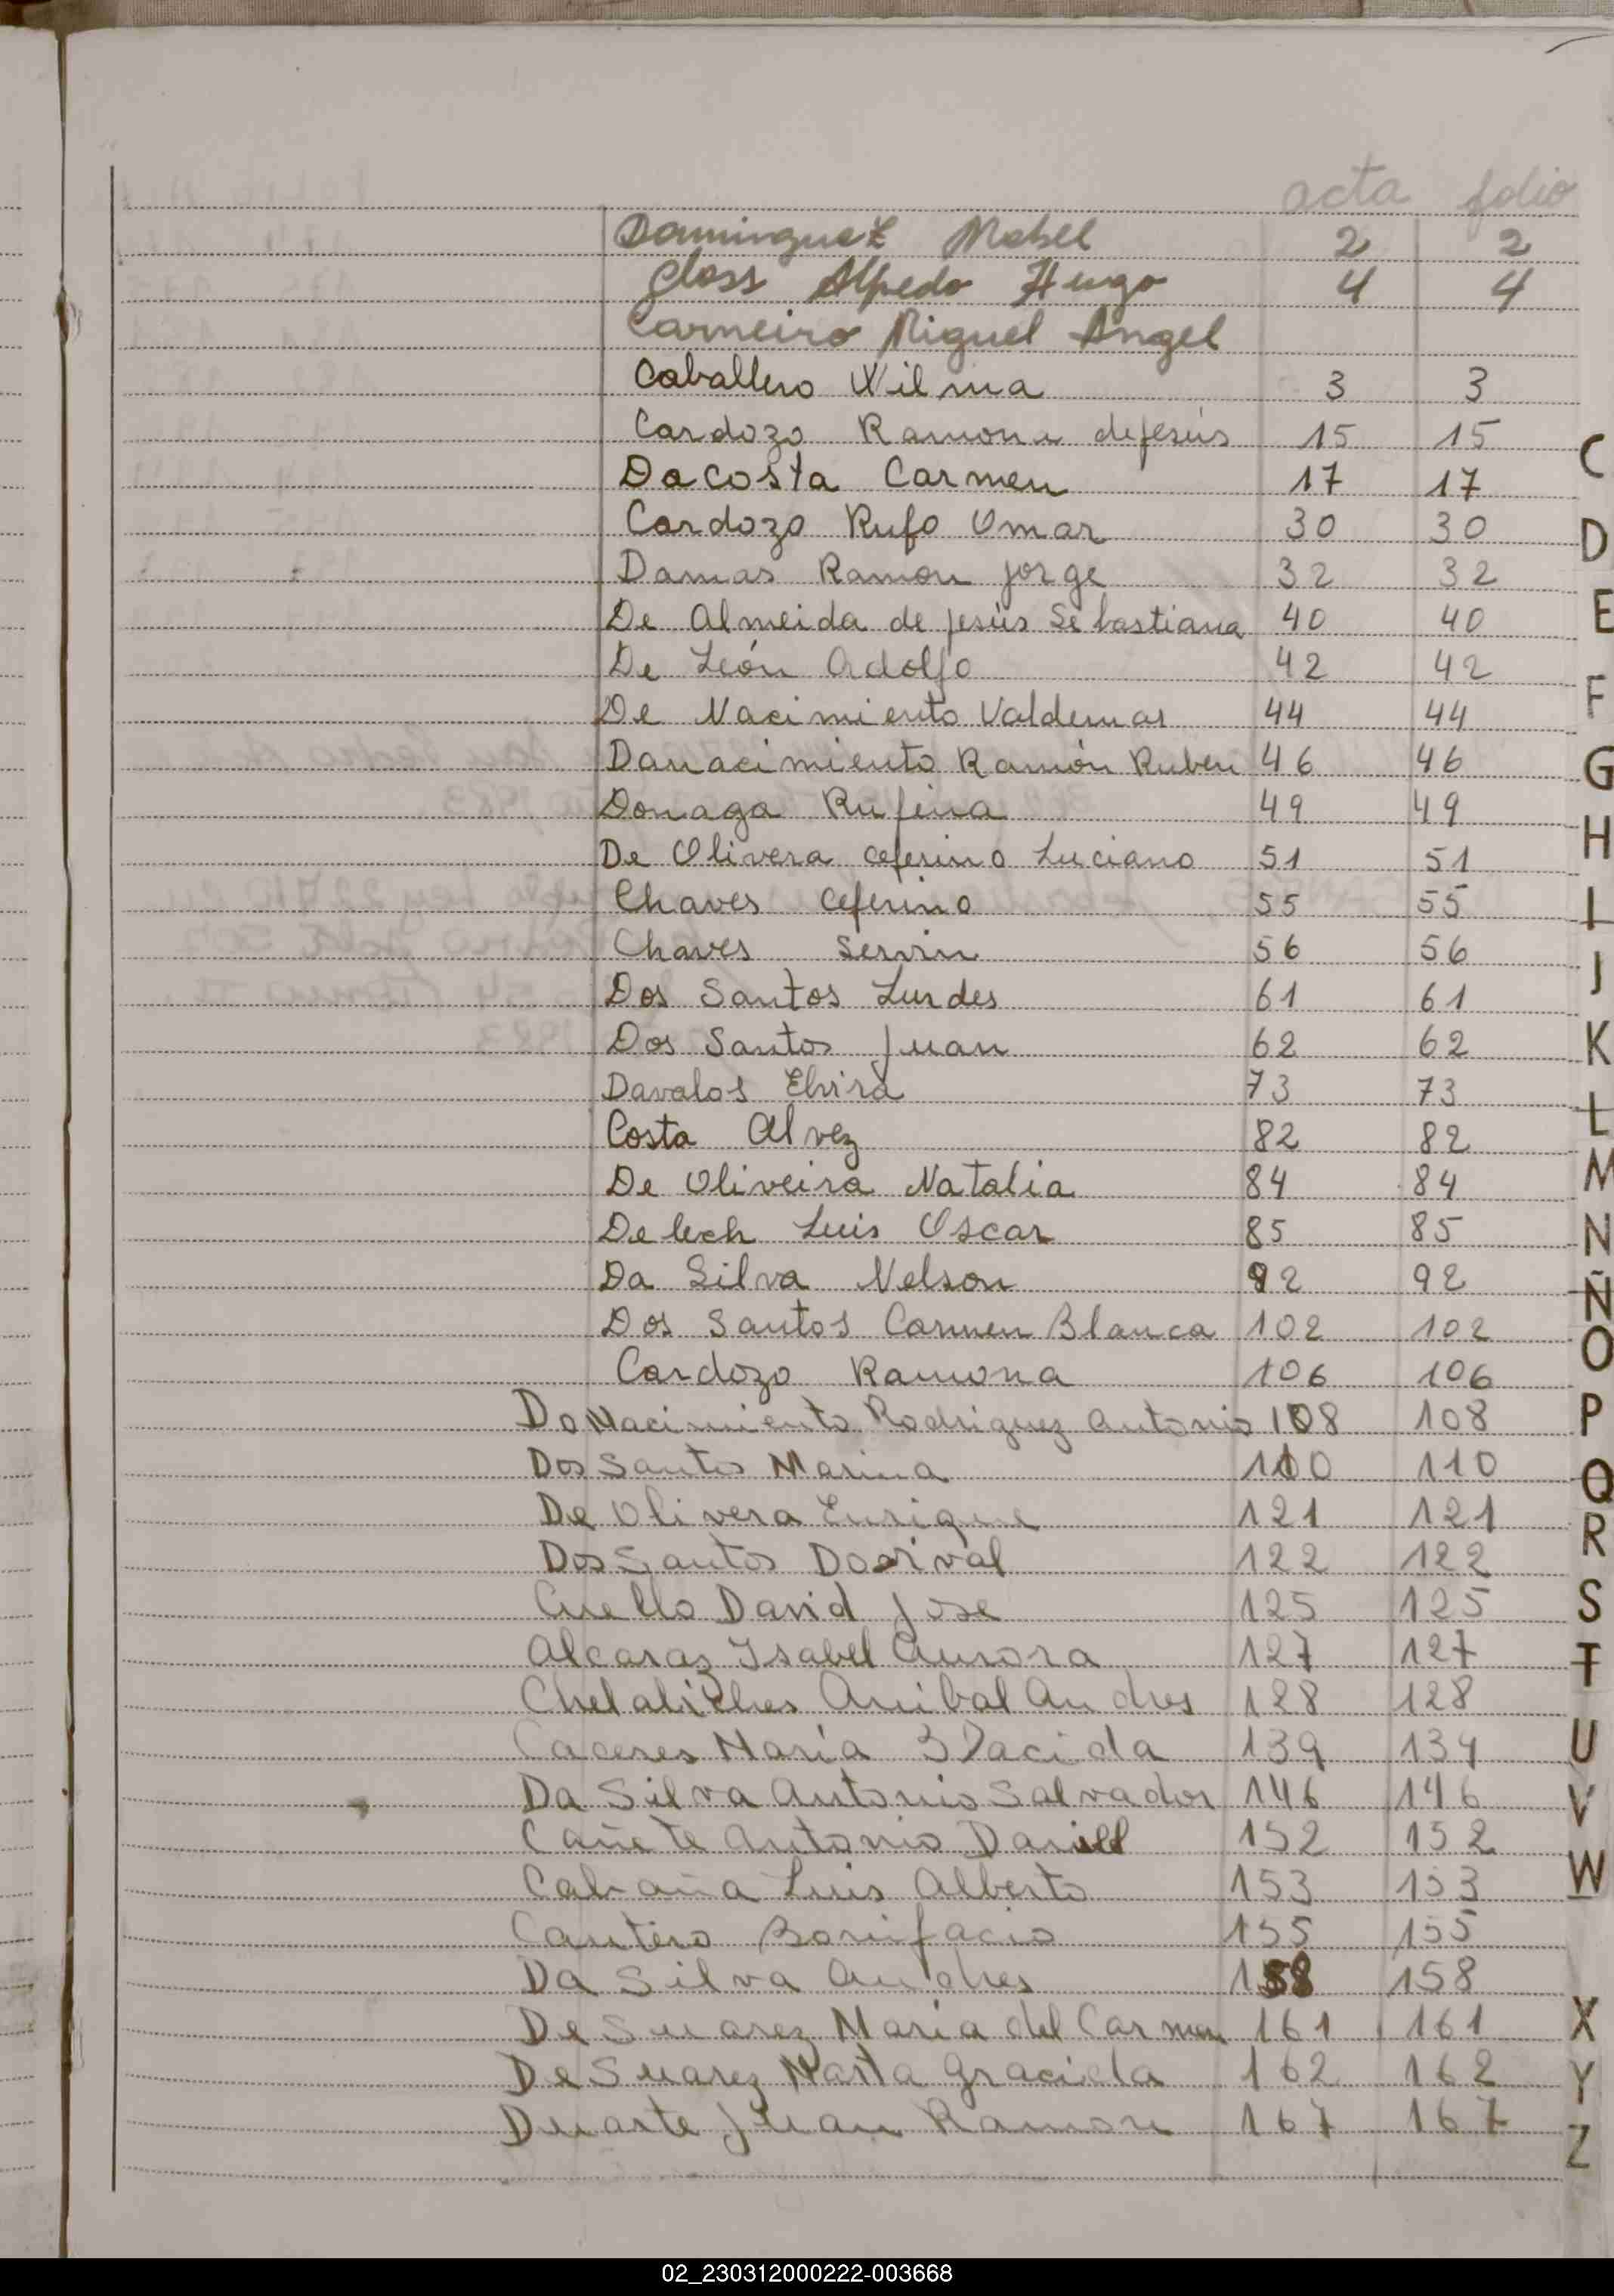 acta folio
Dominguez Mabel 2 2
Closs Alfredo Hugo 4 4
Carneiro Miguel Angel
Caballero Wilma 3 3
Cardozo Ramona dejesús 15 15
Dacosta Carmen 17 17
Cardozo Rufo Omar 30 30
Damas Ramon jorge 32 32
De Almeida de jesús Sebastiana 40 40
De León Adolfo 42 42
De Nacimiento Valdemar 44 44
Danacimiento Ramón Ruben 46 46
Donaga Rufina 49 49
De Olivera Ceferino Luciano 51 51
Chaves Ceferino 55 55
Chaves Servin 56 56
Dos Santos Lurdes 61 61
Dos Santos Juan 62 62
Davalos Elvira 73 73
Costa Alvez 82 82
De Oliveira Natalia 84 84
Luis Oscar 85 85
Da Silva Nelson 92 92
Dos Santos Carmen Blanca 102 102
Cardozo Ramona 106 106
Do Nacimiento Rodriguez Antonio 108 108
Dos Santos Marina 110 110
De Olivera Enrique 121 121
Dos Santos Dorival 122 122
Cuello David Jose 125 125
Alcaraz Isabel Aurora 127 127
Anibal Andres 128 128
Caceres María 139 139
Da Silva Antonio Salvador 146 146
Cañete Antonio Daniel 152 152
Cabaña Luis Alberto 153 153
Cantero Bonifacio 155 155
Da Silva Andres 158 158
De Suarez Maria del Carmen 161 161
De Suarez Marta Graciela 162 162
Duarte Juan Ramon 167 167
C
D
E
F
G
H
I
J
K
L
M
N
Ñ
O
P
Q
R
S
T
U
V
W
X
Y
Z
02_230312000222-003668